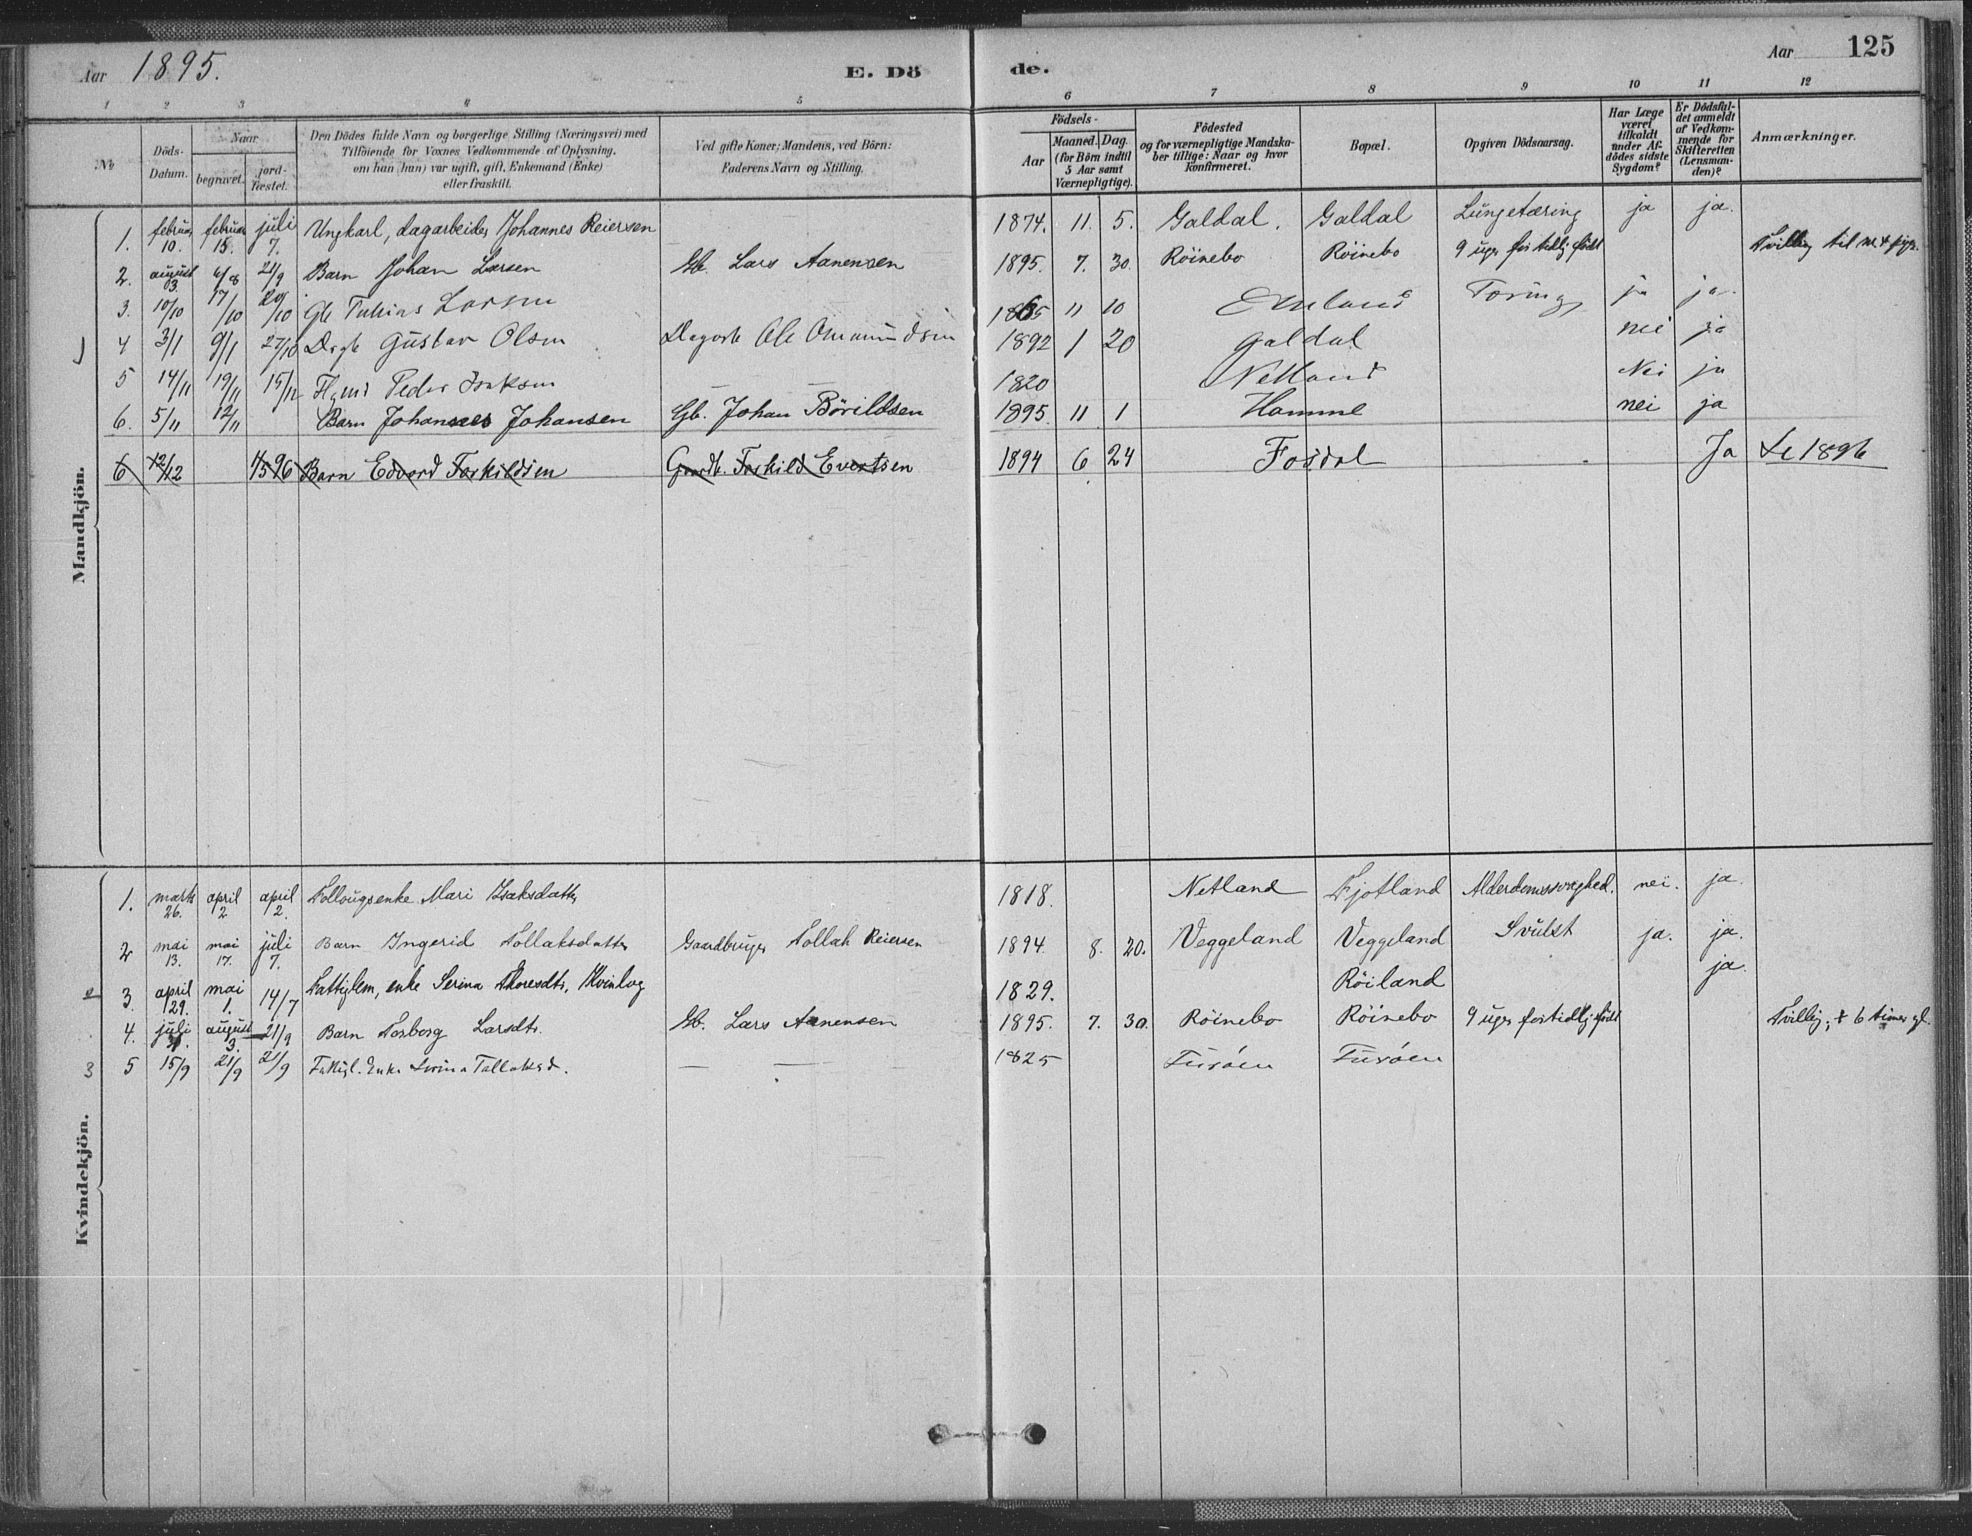 Aar 1895. E. Dö de. Aar 125
1 2 3 4 5 6 7 8 9 10 11 12
№ Döds-Datum. Naar begravet. jord-fæstet. Den Dödes fulde Navn og borgerlige Stilling (Næringsvei) med Tilföiende for Voxnes Vedkommende af Oplysning, om han (hun) var ugift, gift, Enkemand (Enke) eller fraskilt. Ved gifte Koner; Mandens, ved Börn: Faderens Navn og Stilling. Födsels- Aar Maaned. Dag. (for Börn indtil 5 Aar samt Værnepligtige). Födested og for værnepligtige Mandskaber tillige: Naar og hvor Konfirmeret. Bopæl. Opgiven Dödsaarsag. Har Læge været tilkaldt under Afdödes sidste Sygdom? Er Dödsfaldet anmeldt af Vedkommende for Skifteretten (Lensmanden)? Anmærkninger.
Mandkjön.
1. februar 10. februar 15. juli 7. Ungkarl, dagarbeider Johannes Reiersen 1874. 11. 5. Galdal. Galdal Lungetæring ja ja.
2. august 3. 6/8 21/9 Barn Johan Larsen Gb. Lars Aanensen 1895. 7. 30. Röinebo Röinebo 9 uger for tidlig född Tvilling til nr 4
3. 10/10 17/10 20/10 Gb Tobias Larsen 1865 11 10 Tæring ja ja
4 3/1 9/1 27/10 Gustav Olsen Ole Ommundsen 1892 1 20 Galdal nei ja
5 14/11 19/11 15/12 Peder Isaksen 1820 Netland Nei ja
6. 5/11 12/11 Barn Johannes Johansen Gb. Johan Börildsen 1895 11 1 Homme nei ja
6 12/12 1/5 96 Barn Edvard Torkildsen Gaardb. Torkild Evertsen 1894 6 24 Fosdal Ja Se 1896
Kvindekjön.
1. marts 26. april 2 april 2. Follougsenke Mari Isaksdatter 1818. Netland Fjotland Alderdomssvaghed. nei. ja.
2 mai 13. mai 17. juli 7. Barn Ingerid Tollaksdatter Gaardbruger Tollak Reiersen 1894 8. 20. Veggeland Veggeland Svulst ja. ja.
2 3. april 29. mai 1. 14/7 Fattiglem, enke Serina Thoresdtr. Kvinlog 1829. Röiland ja.
4. juli 31. august 3. 21/9 Barn Torborg Larsdtr. Gb. Lars Aanensen 1895. 7. 30. Röinebo Röinebo 9 uger for tidlig född Tvilling, + 6 timer gl.
3 5 15/9 21/9 21/9 Enke Serina Tollaksd. — — 1825 Fusöen Fusöen